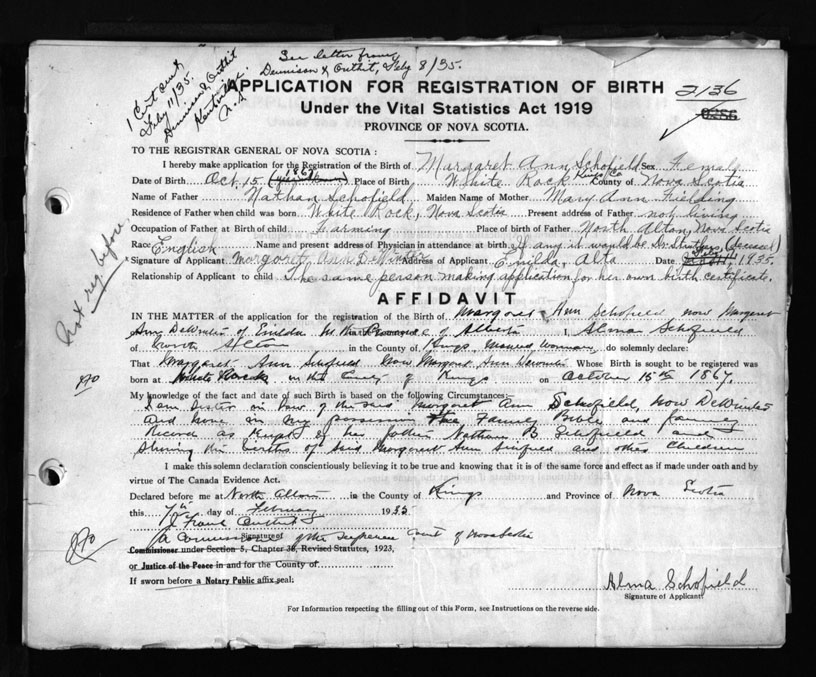 See letter from
Dennison & Outhit, Feby 8/35.
1 Cert sent
Feby 11/35.
Dennison & Outhit
Kentville
N.S.
APPLICATION FOR REGISTRATION OF BIRTH
2136
Under the Vital Statistics Act 1919
PROVINCE OF NOVA SCOTIA.
TO THE REGISTRAR GENERAL OF NOVA SCOTIA :
I hereby make application for the Registration of the Birth of Margaret Ann Schofield Sex Female
Date of Birth Oct. 15 1867 Place of Birth White Rock Kings Co County of Nova Scotia
Name of Father Nathan Schofield Maiden Name of Mother Mary Ann Fielding
Residence of Father when child was born White Rock, Nova Scotia Present address of Father not living
Occupation of Father at Birth of child Farming Place of birth of Father North Alton, Nova Scotia
Race English Name and present address of Physician in attendance at birth If any it would be Dr. Struthers (deceased)
Signature of Applicant Margaret Ann DeWinter Address of Applicant Enilda, Alta Date Feby 1935.
Relationship of Applicant to child The same person making application for her own birth certificate.
Not reg. before.
AFFIDAVIT
IN THE MATTER of the application for the registration of the Birth of Margaret Ann Schofield now Margaret
Ann DeWinter of Enilda in the Province of Alberta I, Alma Schofield
of North Alton in the County of Kings, Married Woman, do solemnly declare:
That Margaret Ann Schofield now Margaret Ann DeWinter Whose Birth is sought to be registered was
born at White Rock in the County of Kings on October 15th 1867.
No
My knowledge of the fact and date of such Birth is based on the following Circumstances:
I am sister in law of the said Margaret Ann Schofield, now DeWinter
and have in my possession the Family Bible and family
Record as kept by her father Nathan B. Schofield and
showing the births of said Margaret Ann Schofield and other children
I make this solemn declaration conscientiously believing it to be true and knowing that it is of the same force and effect as if made under oath and by
virtue of The Canada Evidence Act.
Declared before me at North Alton in the County of Kings and Province of Nova Scotia
this 7th day of February 1935
J Frank Outhit
A Commissioner of the Supreme Court of Nova Scotia
Signature of
Commissioner under Section 5, Chapter 38, Revised Statutes, 1923,
No
or Justice of the Peace in and for the County of
If sworn before a Notary Public affix seal.
Alma Schofield
Signature of Applicant
For Information respecting the filling out of this Form, see Instructions on the reverse side.